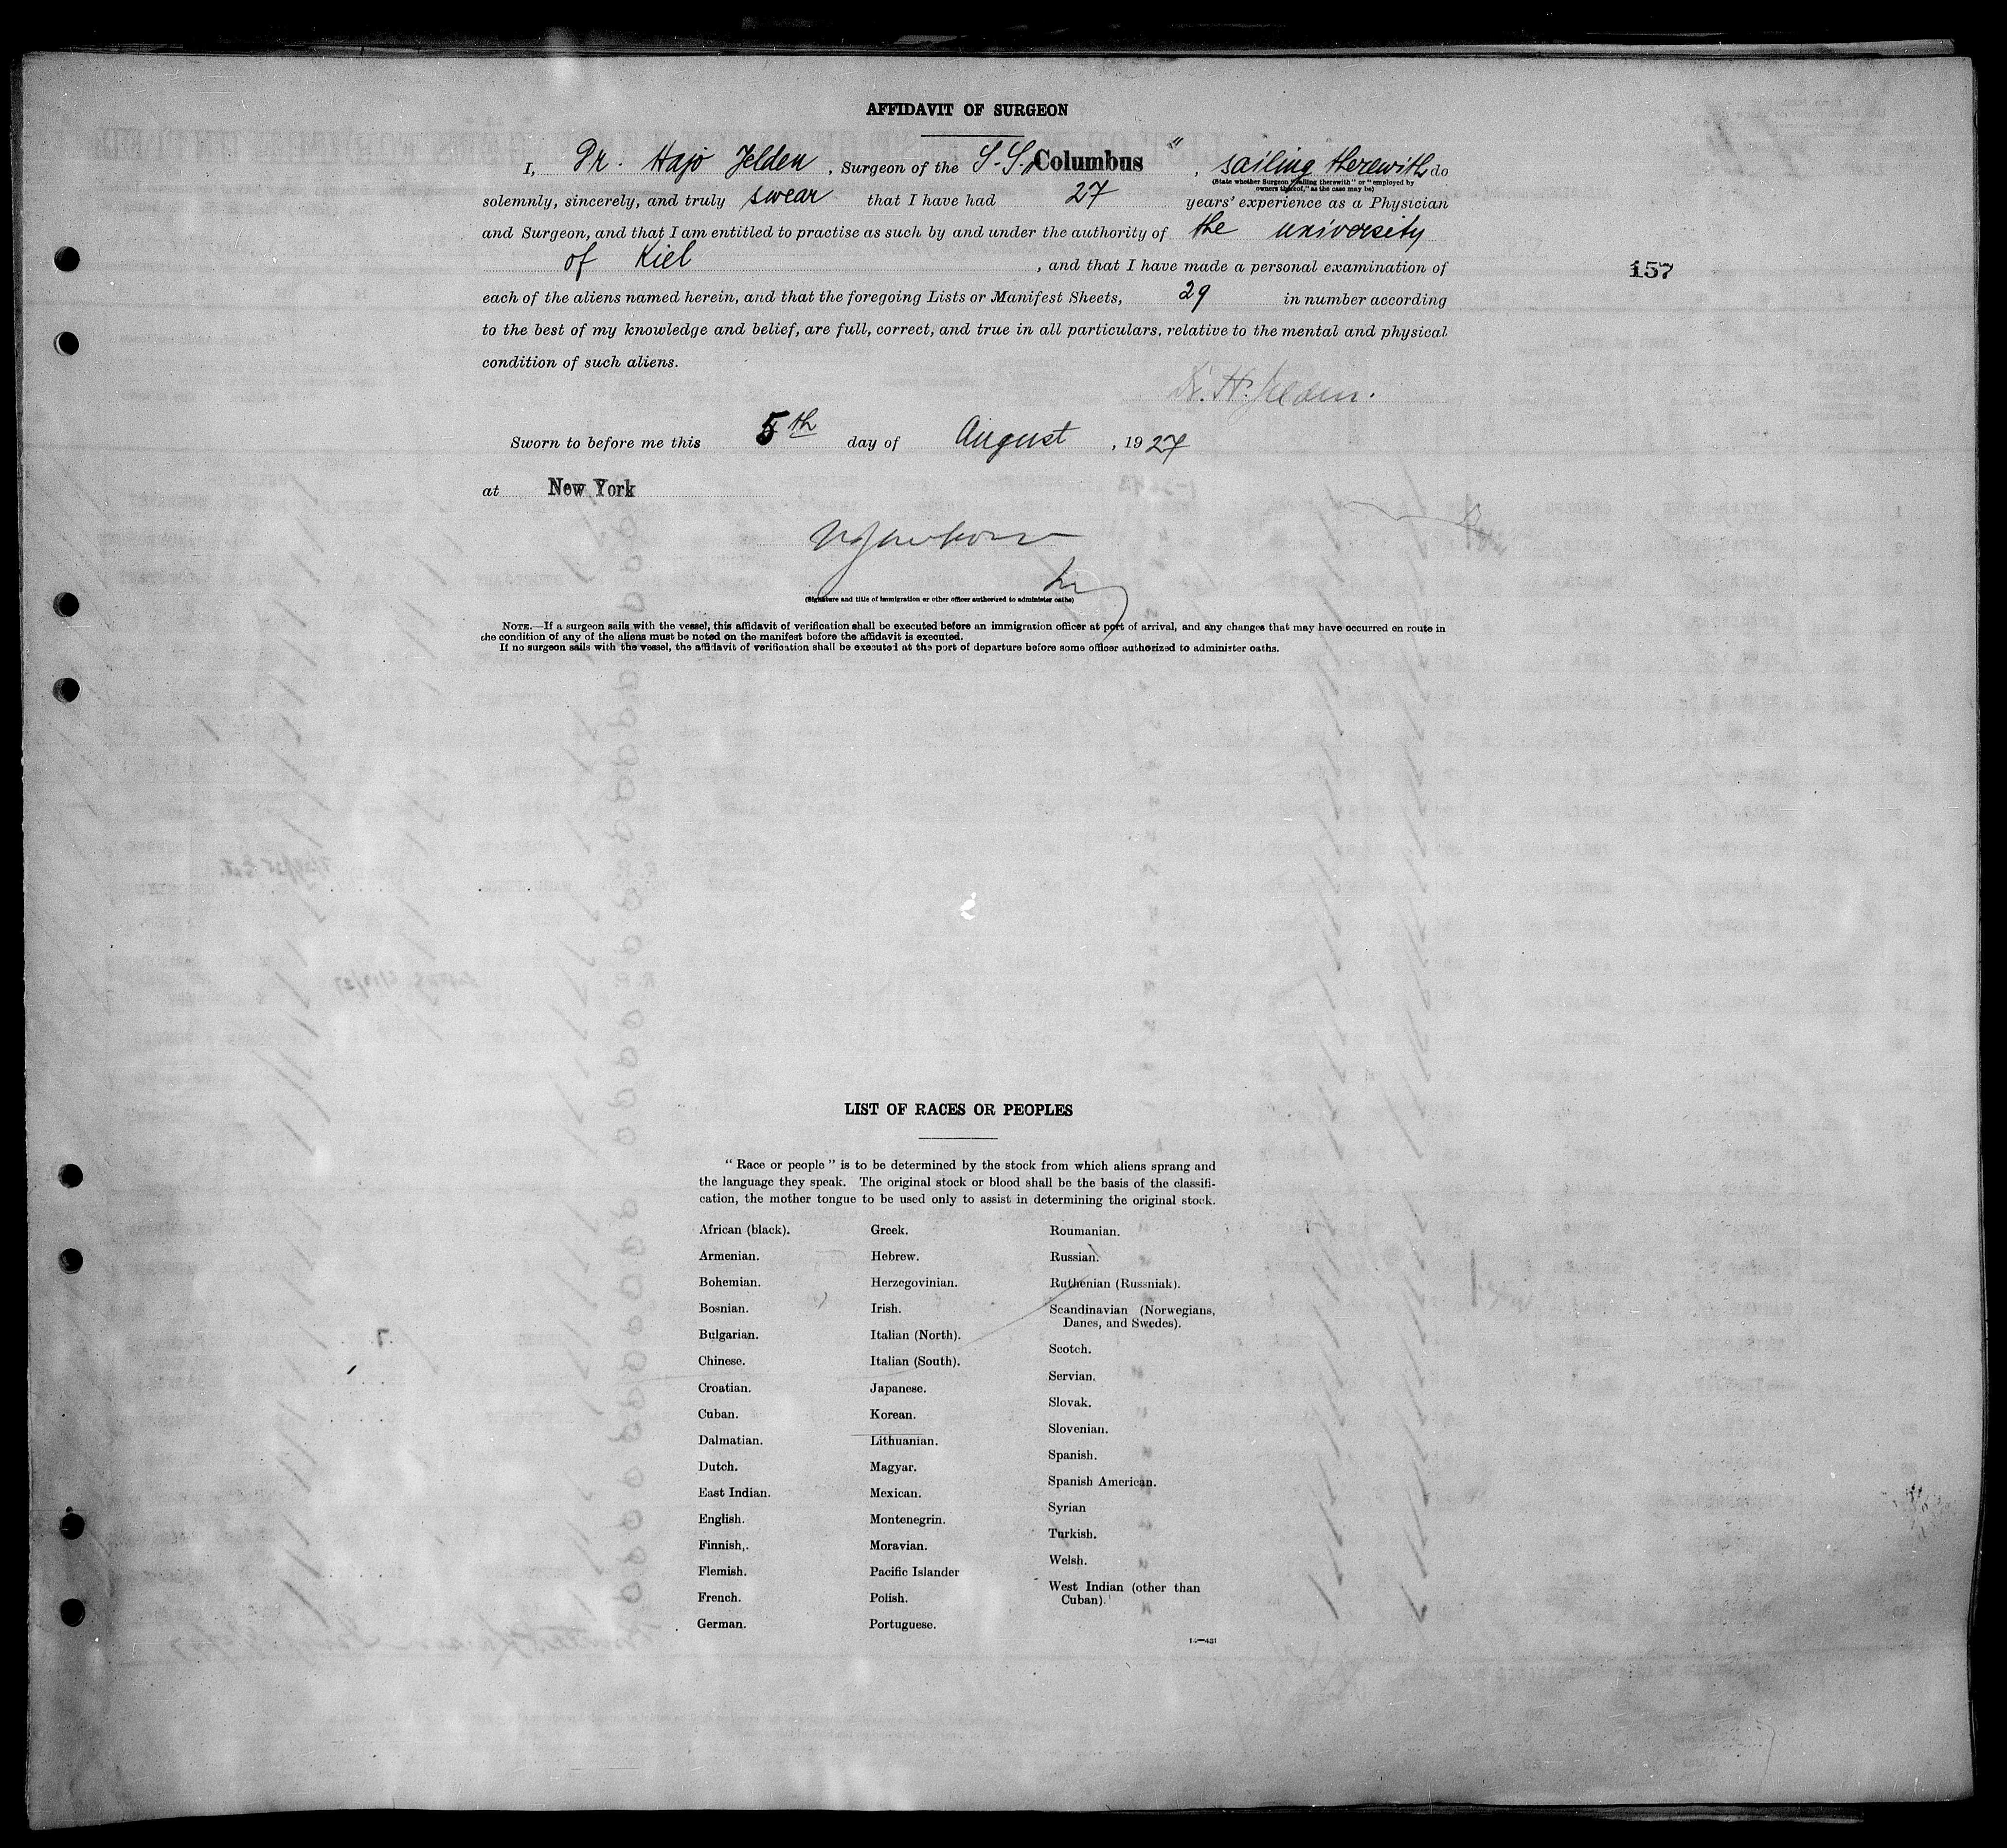 AFFIDAVIT OF SURGEON
I, Dr. Hajo Jelden, Surgeon of the S.S. "Columbus", sailing therewith do
(State whether Surgeon "sailing therewith" or "employed by
owners thereof," as the case may be)
solemnly, sincerely, and truly swear that I have had 27 years' experience as a Physician
and Surgeon, and that I am entitled to practise as such by and under the authority of the university
of Kiel, and that I have made a personal examination of
157
each of the aliens named herein, and that the foregoing Lists or Manifest Sheets, 29 in number according
to the best of my knowledge and belief, are full, correct, and true in all particulars, relative to the mental and physical
condition of such aliens.
Dr. H. Jelden.
Sworn to before me this 5th day of August, 1927
at New York
(Signature and title of immigration or other officer authorized to administer oaths)
NOTE.—If a surgeon sails with the vessel, this affidavit of verification shall be executed before an immigration officer at port of arrival, and any changes that may have occurred en route in
the condition of any of the aliens must be noted on the manifest before the affidavit is executed.
If no surgeon sails with the vessel, the affidavit of verification shall be executed at the port of departure before some officer authorized to administer oaths.
LIST OF RACES OR PEOPLES
"Race or people" is to be determined by the stock from which aliens sprang and
the language they speak. The original stock or blood shall be the basis of the classifi-
cation, the mother tongue to be used only to assist in determining the original stock.
African (black).
Armenian.
Bohemian.
Bosnian.
Bulgarian.
Chinese.
Croatian.
Cuban.
Dalmatian.
Dutch.
East Indian.
English.
Finnish,.
Flemish.
French.
German.
Greek.
Hebrew.
Herzegovinian.
Irish.
Italian (North).
Italian (South).
Japanese.
Korean.
Lithuanian.
Magyar.
Mexican.
Montenegrin.
Moravian.
Pacific Islander
Polish.
Portuguese.
Roumanian.
Russian.
Ruthenian (Russniak).
Scandinavian (Norwegians,
Danes, and Swedes).
Scotch.
Servian.
Slovak.
Slovenian.
Spanish.
Spanish American.
Syrian
Turkish.
Welsh.
West Indian (other than
Cuban).
14—431